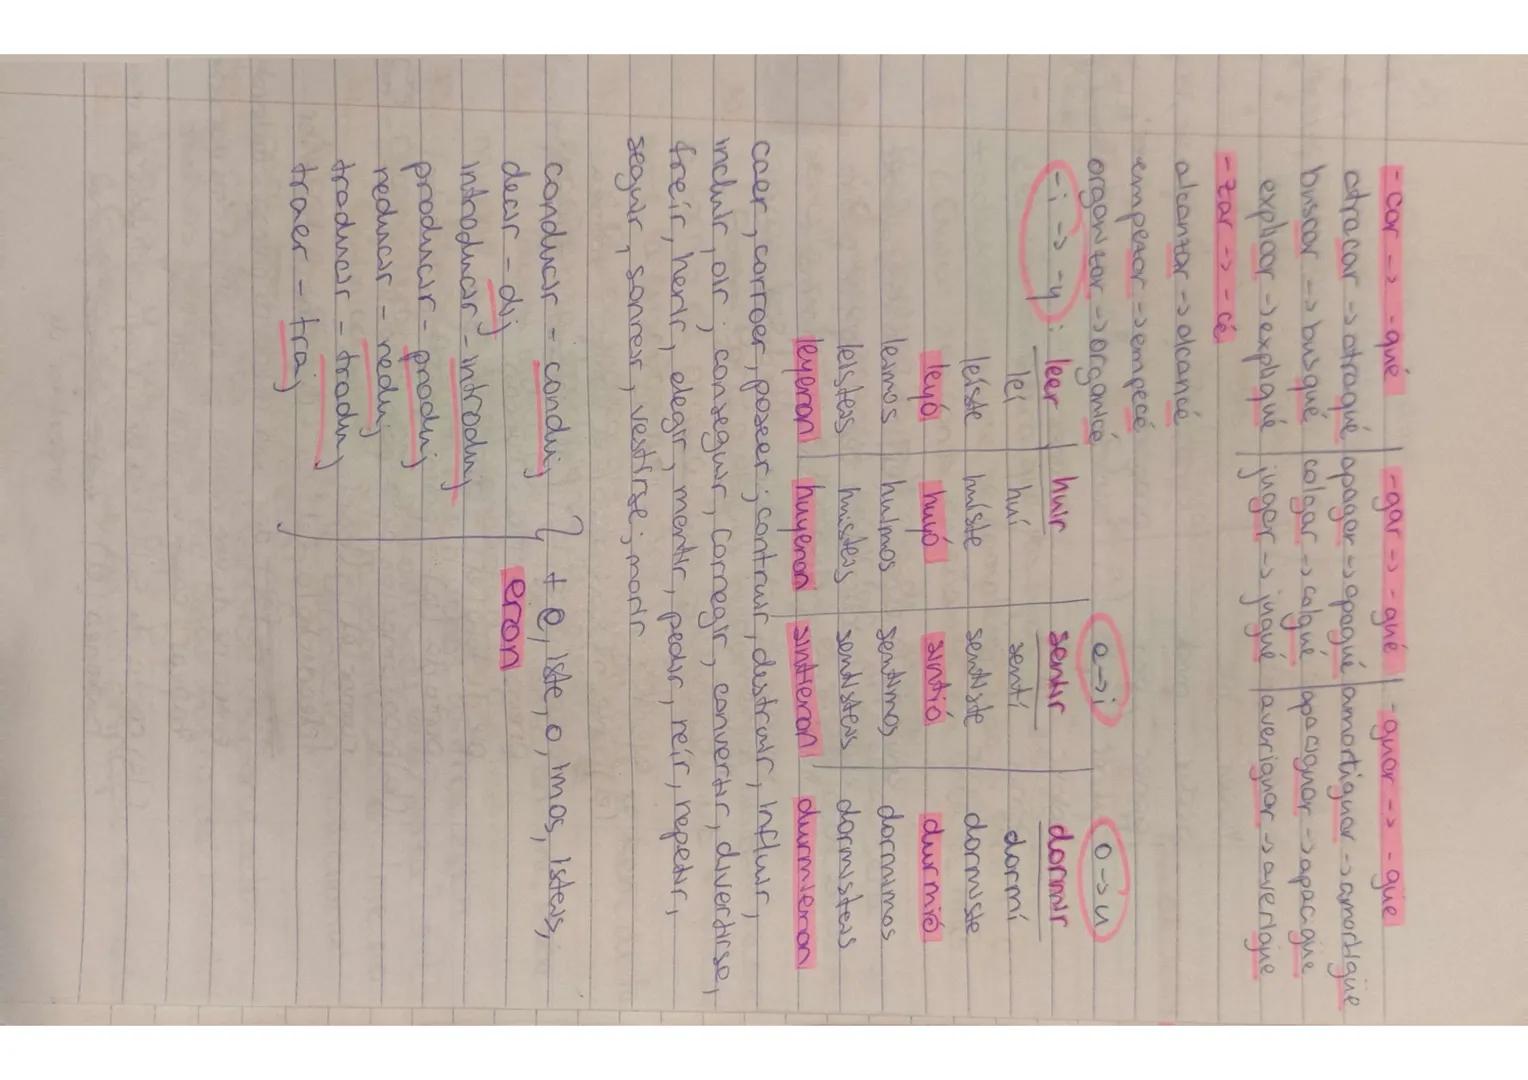 -car -> -qué | -gar -> -gué | -guar -> -güe
atracar -> atraqué | apagar -> apagué | amortiguar -> amortigüe
buscar -> busqué | colgar -> colgué | apaciguar -> apacigüe
explicar -> expliqué | jugar -> jugué | averiguar -> averigüe
-zar -> -cé
alcanzar -> alcancé
empezar -> empecé
organizar -> organicé
e->i o->u
-i -> -y: leer | huir | sentir | dormir
leí | huí | sentí | dormí
leíste | huíste | sentiste | dormiste
leyó | huyó | sintió | durmió
leímos | huímos | sentimos | dormimos
leísteis | huisteis | sentisteis | dormisteis
leyeron | huyeron | sintieron | durmieron
caer, corroer, poseer; contruir, destruir, influir,
incluir, oír; conseguir, corregir, convertir, divertirse,
freír, herir, elegir, mentir, pedir, reír, repetir,
seguir, sonreír, vestirse; morir
conducir - conduj } + e, iste, o, imos, isteis,
decir - dij eron
introducir - introduj
producir - produj
reducir - reduj
traducir - traduj
traer - traj